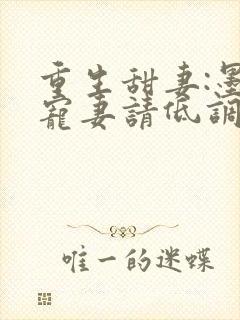 重生甜妻:墨
寵妻請低調
唯一的迷蝶